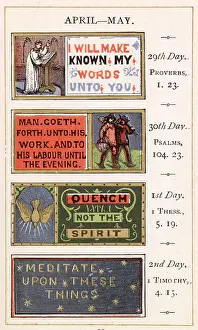 APRIL—MAY.
I WILL MAKE
KNOWN MY
WORDS
UNTO YOU
29th Day.
PROVERBS,
1. 23.
MAN. GOETH.
FORTH. UNTO. HIS.
WORK. AND. TO
HIS LABOUR UNTIL
THE EVENING.
30th Day.
PSALMS,
104. 23.
QUENCH
NOT THE
SPIRIT
1st Day.
1 THESS.,
5. 19.
MEDITATE
UPON THESE
THINGS
2nd Day.
1 TIMOTHY,
4. 15.